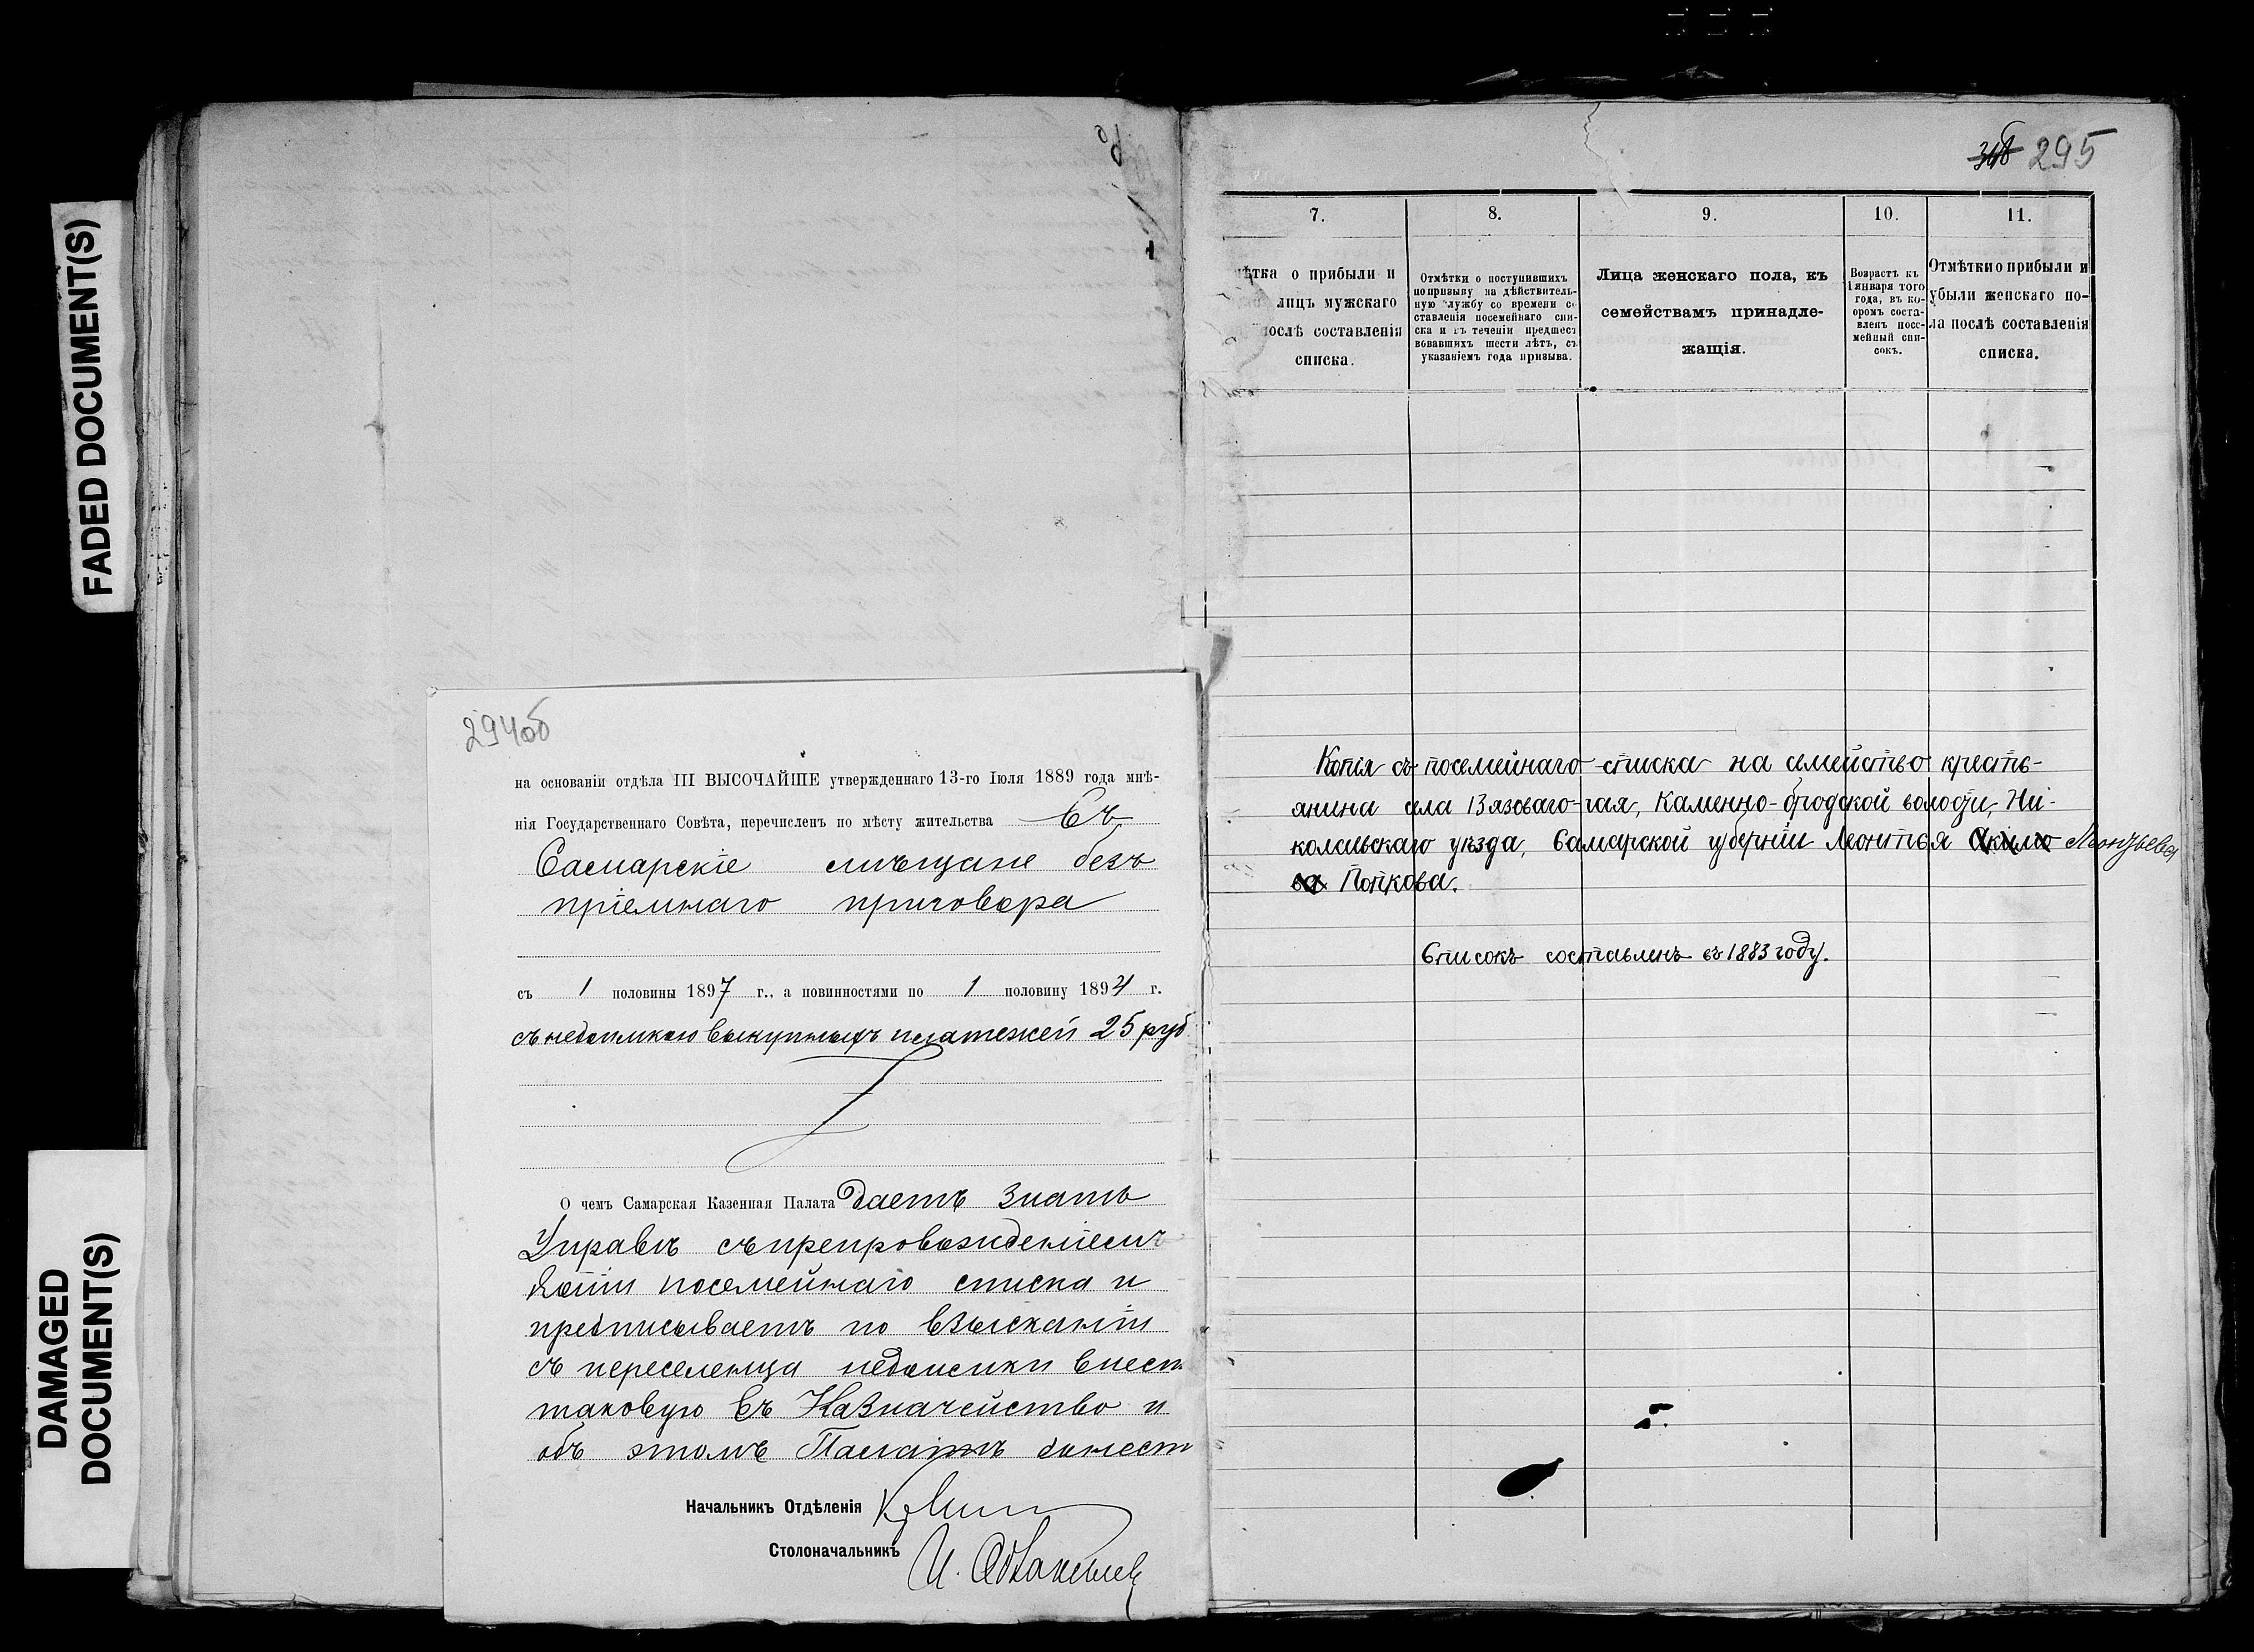 FADED DOCUMENT(S)
DAMAGED
DOCUMENT(S)
294об
на основаніи отдѣла III ВЫСОЧАЙШЕ утвержденнаго 13-го Іюля 1889 года мнѣ-
нія Государственнаго Совѣта, перечисленъ по мѣсту жительства Въ
Самарскіе мѣщане безъ
пріемнаго приговора
съ 1 половины 1897 г., а повинностями по 1 половину 1894 г.
съ недоимкою выкупныхъ платежей 25 руб
О чемъ Самарская Казенная Палата даетъ знать
Управѣ съ препровожденіемъ
копіи посемейнаго списка и
предписываетъ по взысканіи
съ переселенца недоимки внест
таковую въ Казначейство и
объ этомъ Палатѣ донест
Начальникъ Отдѣленія
Столоначальникъ
295
7. 8. 9. 10. 11.
ѣтка о прибыли и
лицъ мужскаго
послѣ составленія
списка.
Отмѣтки о поступившихъ
по призыву на дѣйствитель-
ную службу со времени со
ставленія посемейнаго спи-
ска и въ теченіи предшест
вовавшихъ шести лѣтъ, съ
указаніемъ года призыва.
Лица женскаго пола, къ
семействамъ принадле-
жащія.
Возрастъ къ
1 января того
года, въ ко-
оромъ соста-
вленъ посе-
мейный спи-
сокъ.
Отмѣтки о прибыли и
убыли женскаго по-
ла послѣ составленія
списка.
Копія съ посемейнаго списка на семейство кресть-
янина села Вязоваго-гая, Каменно-бродской волости, Ни-
колаевскаго уѣзда, Самарской губерніи Леонтья Акимо Леонтьева
ва Попкова.
Списокъ составленъ въ 1883 году.